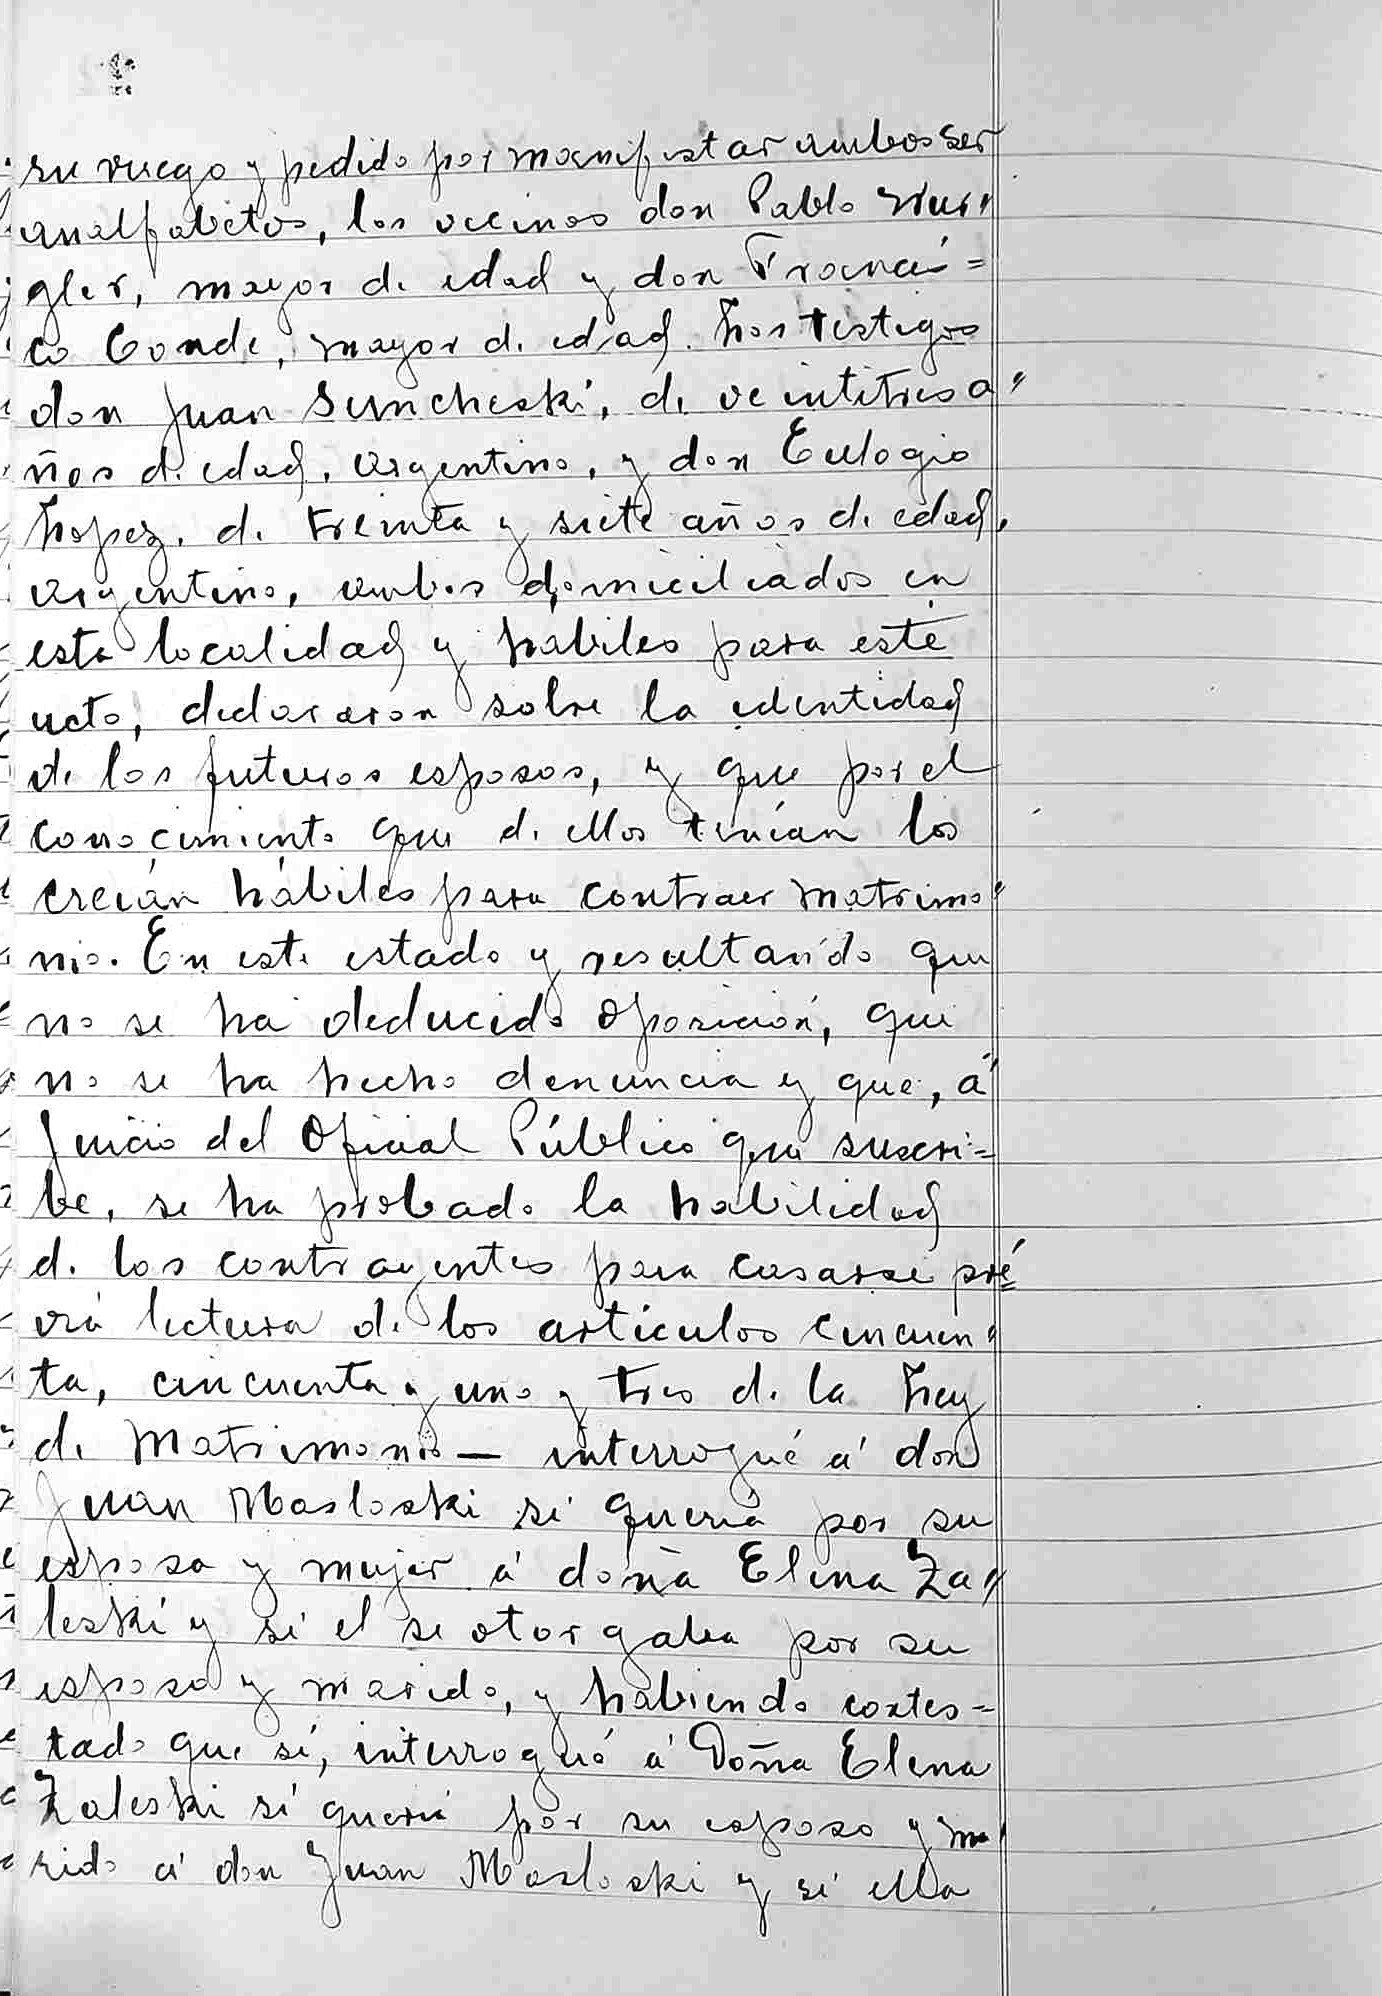 su ruego y pedido por manifestar ambos ser
analfabetos, los vecinos don Pablo Wur"
gler, mayor de edad y don Francis=
co Conde, mayor de edad. Los testigos
don Juan Semcheski, de veintitres a"
ños de edad, argentino, y don Eulogio
Lopez, de treinta y siete años de edad,
argentino, ambos domiciliados en
esta localidad y hábiles para este
acto, declararon sobre la identidad
de los futuros esposos, y que por el
conocimiento que de ellos tenían los
creían hábiles para contraer matrimo"
nio. En este estado y resultando que
no se ha deducido oposición, que
no se ha hecho denuncia y que, á
juicio del Oficial Público que suscri=
be, se ha probado la habilidad
de los contrayentes para casarse pré=
via lectura de los artículos cincuen"
ta, cincuenta y uno y tres de la Ley
de Matrimonio — interrogué á don
Juan Masloski si quería por su
esposa y mujer á doña Elena Za"
leski y si el se otorgaba por su
esposo y marido, y habiendo contes=
tado que sí, interrogué á Doña Elena
Zaleski si quería por su esposo y ma"
rido á don Juan Masloski y si ella